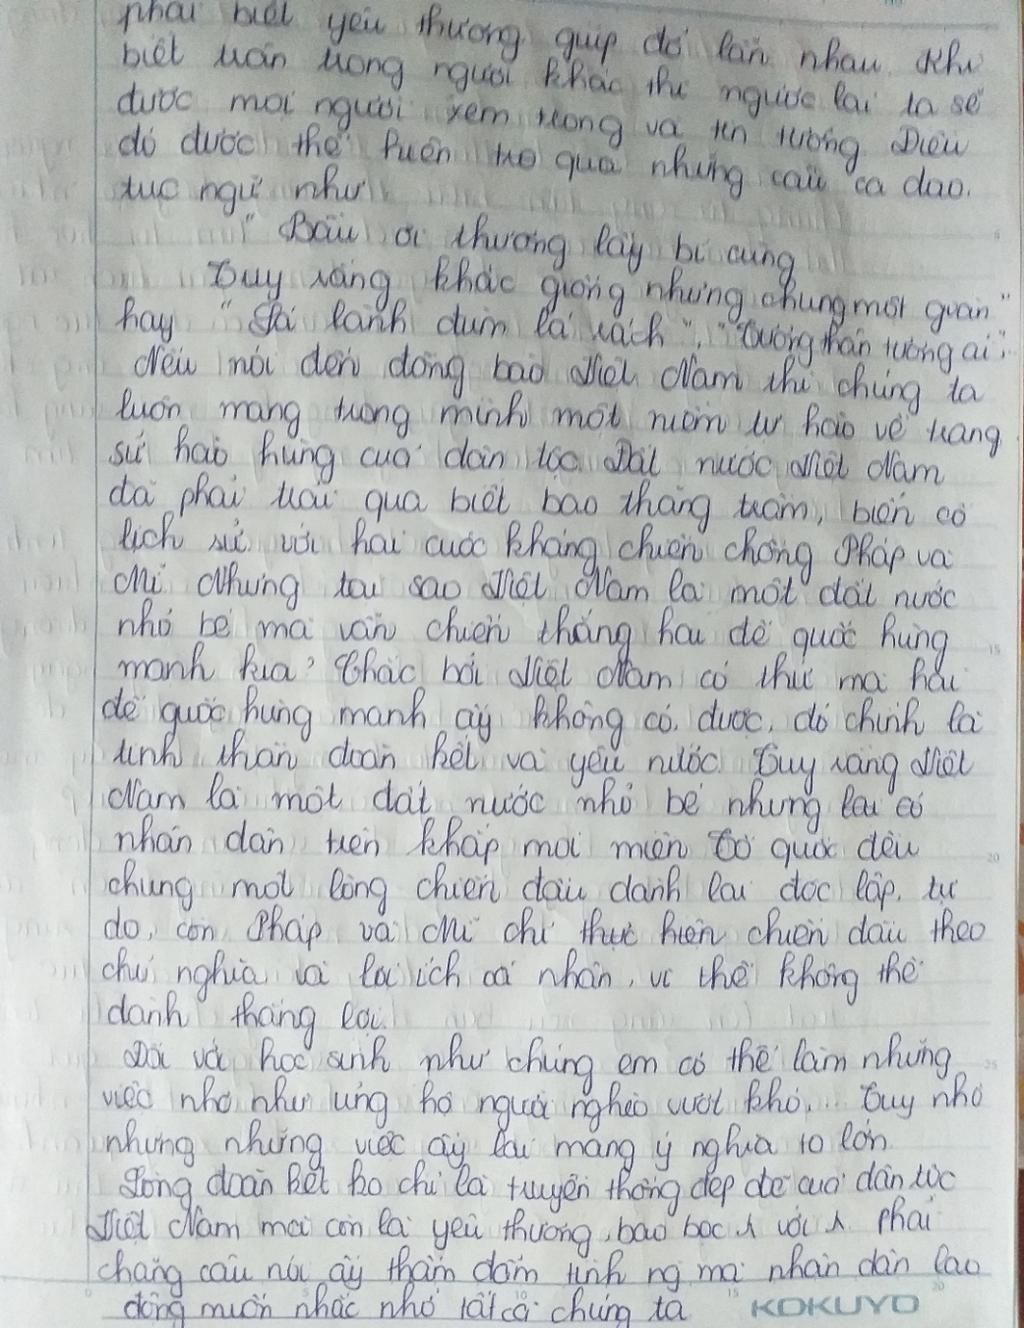 phải biết yêu thương giúp đỡ lẫn nhau. Khi
biết trân trọng người khác thì ngược lại ta sẽ
được mọi người xem trọng và tin tưởng. Điều
đó được thể hiện qua những câu ca dao.
tục ngữ như
" Bầu ơi thương lấy bí cùng
Tuy rằng khác giống nhưng chung một giàn "
hay " Lá lành đùm lá rách ", " Tương thân tương ái ".
Nếu nói đến đồng bào Việt Nam thì chúng ta
luôn mang trong mình một niềm tự hào về trang
sử hào hùng của dân tộc. Đất nước Việt Nam
đã phải trải qua biết bao thăng trầm, biến cố
lịch sử với hai cuộc kháng chiến chống Pháp và
Mĩ. Nhưng tại sao Việt Nam là một đất nước
nhỏ bé mà vẫn chiến thắng hai đế quốc hùng
mạnh kia? Chắc bởi Việt Nam có thứ mà hai
đế quốc hùng mạnh ấy không có được, đó chính là
tinh thần đoàn kết và yêu nước. Tuy rằng Việt
Nam là một đất nước nhỏ bé nhưng lại có
nhân dân trên khắp mọi miền Tổ quốc đều
chung một lòng chiến đấu dành lại độc lập, tự
do, còn Pháp và Mĩ chỉ thực hiện chiến đấu theo
chủ nghĩa và lợi ích cá nhân, vì thế không thể
dành thắng lợi.
Đối với học sinh như chúng em có thể làm những
việc nhỏ như ủng hộ người nghèo vượt khó,... Tuy nhỏ
nhưng những việc ấy lại mang ý nghĩa to lớn.
Lòng đoàn kết ko chỉ là truyền thống đẹp đẽ của dân tộc
Việt Nam mà còn là yêu thương, bao bọc λ với λ. Phải
chăng câu nói ấy thấm đẫm tình ng mà nhân dân lao
động muốn nhắc nhở tất cả chúng ta
KOKUYO